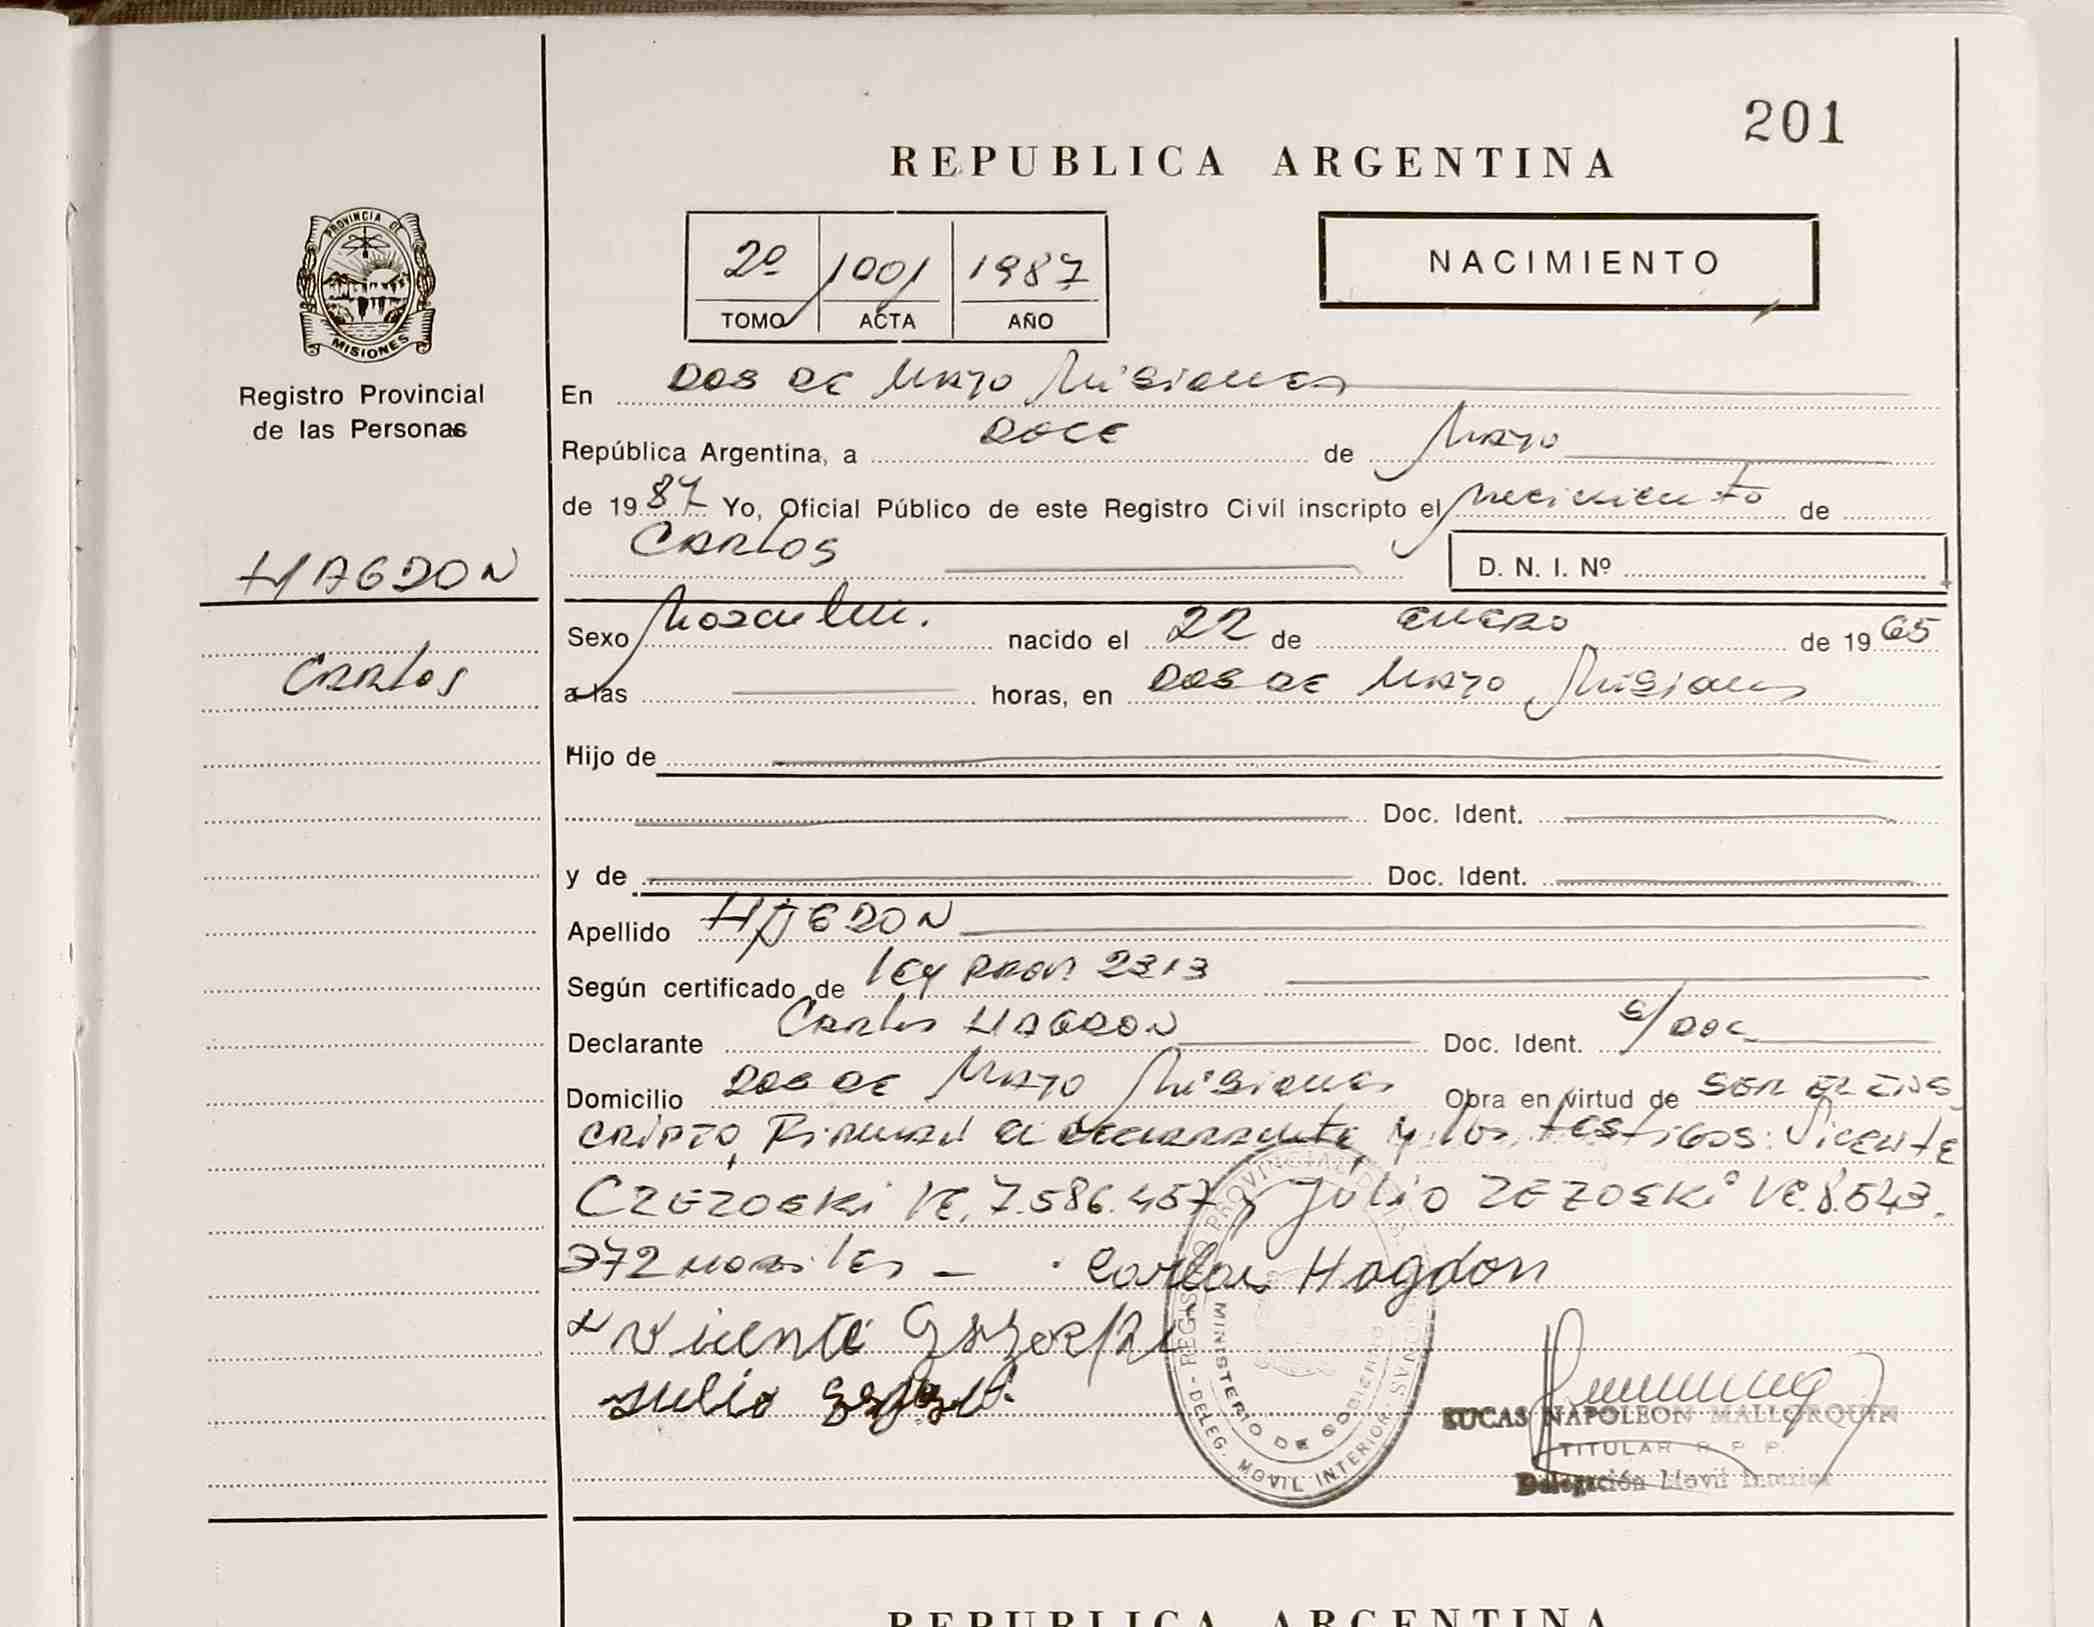 201
REPUBLICA ARGENTINA
PROVINCIA DE
MISIONES
Registro Provincial
de las Personas
2º 1001 1987
TOMO ACTA AÑO
NACIMIENTO
En Dos de Mayo Misiones
República Argentina, a DOCE de Mayo
de 1987 Yo, Oficial Público de este Registro Civil inscripto el nacimiento de
Carlos
D. N. I. Nº
HAGDON
Carlos
Sexo Masculin. nacido el 22 de enero de 1965
a las horas, en Dos de Mayo Misiones
Hijo de
Doc. Ident.
y de Doc. Ident.
Apellido HAGDON
Según certificado de Ley Prov. 2313
Declarante Carlos HAGDON Doc. Ident. S/DOC
Domicilio Dos de Mayo Misiones Obra en virtud de SER EL INS
CRIPTO, Firman el declarante y los testigos: Vicente
CZEZOSKI 7.586.457 y Julio ZEZOSKI 8.543.
372
Carlos Hagdon
Vicente
Julio
REGISTRO PROVINCIAL DE
MINISTERIO DE GOBIERNO
DELEG. MOVIL INTERIOR
LUCAS NAPOLEON MALLORQUIN
TITULAR R. P. P.
Delegación Movil Interior
REPUBLICA ARGENTINA